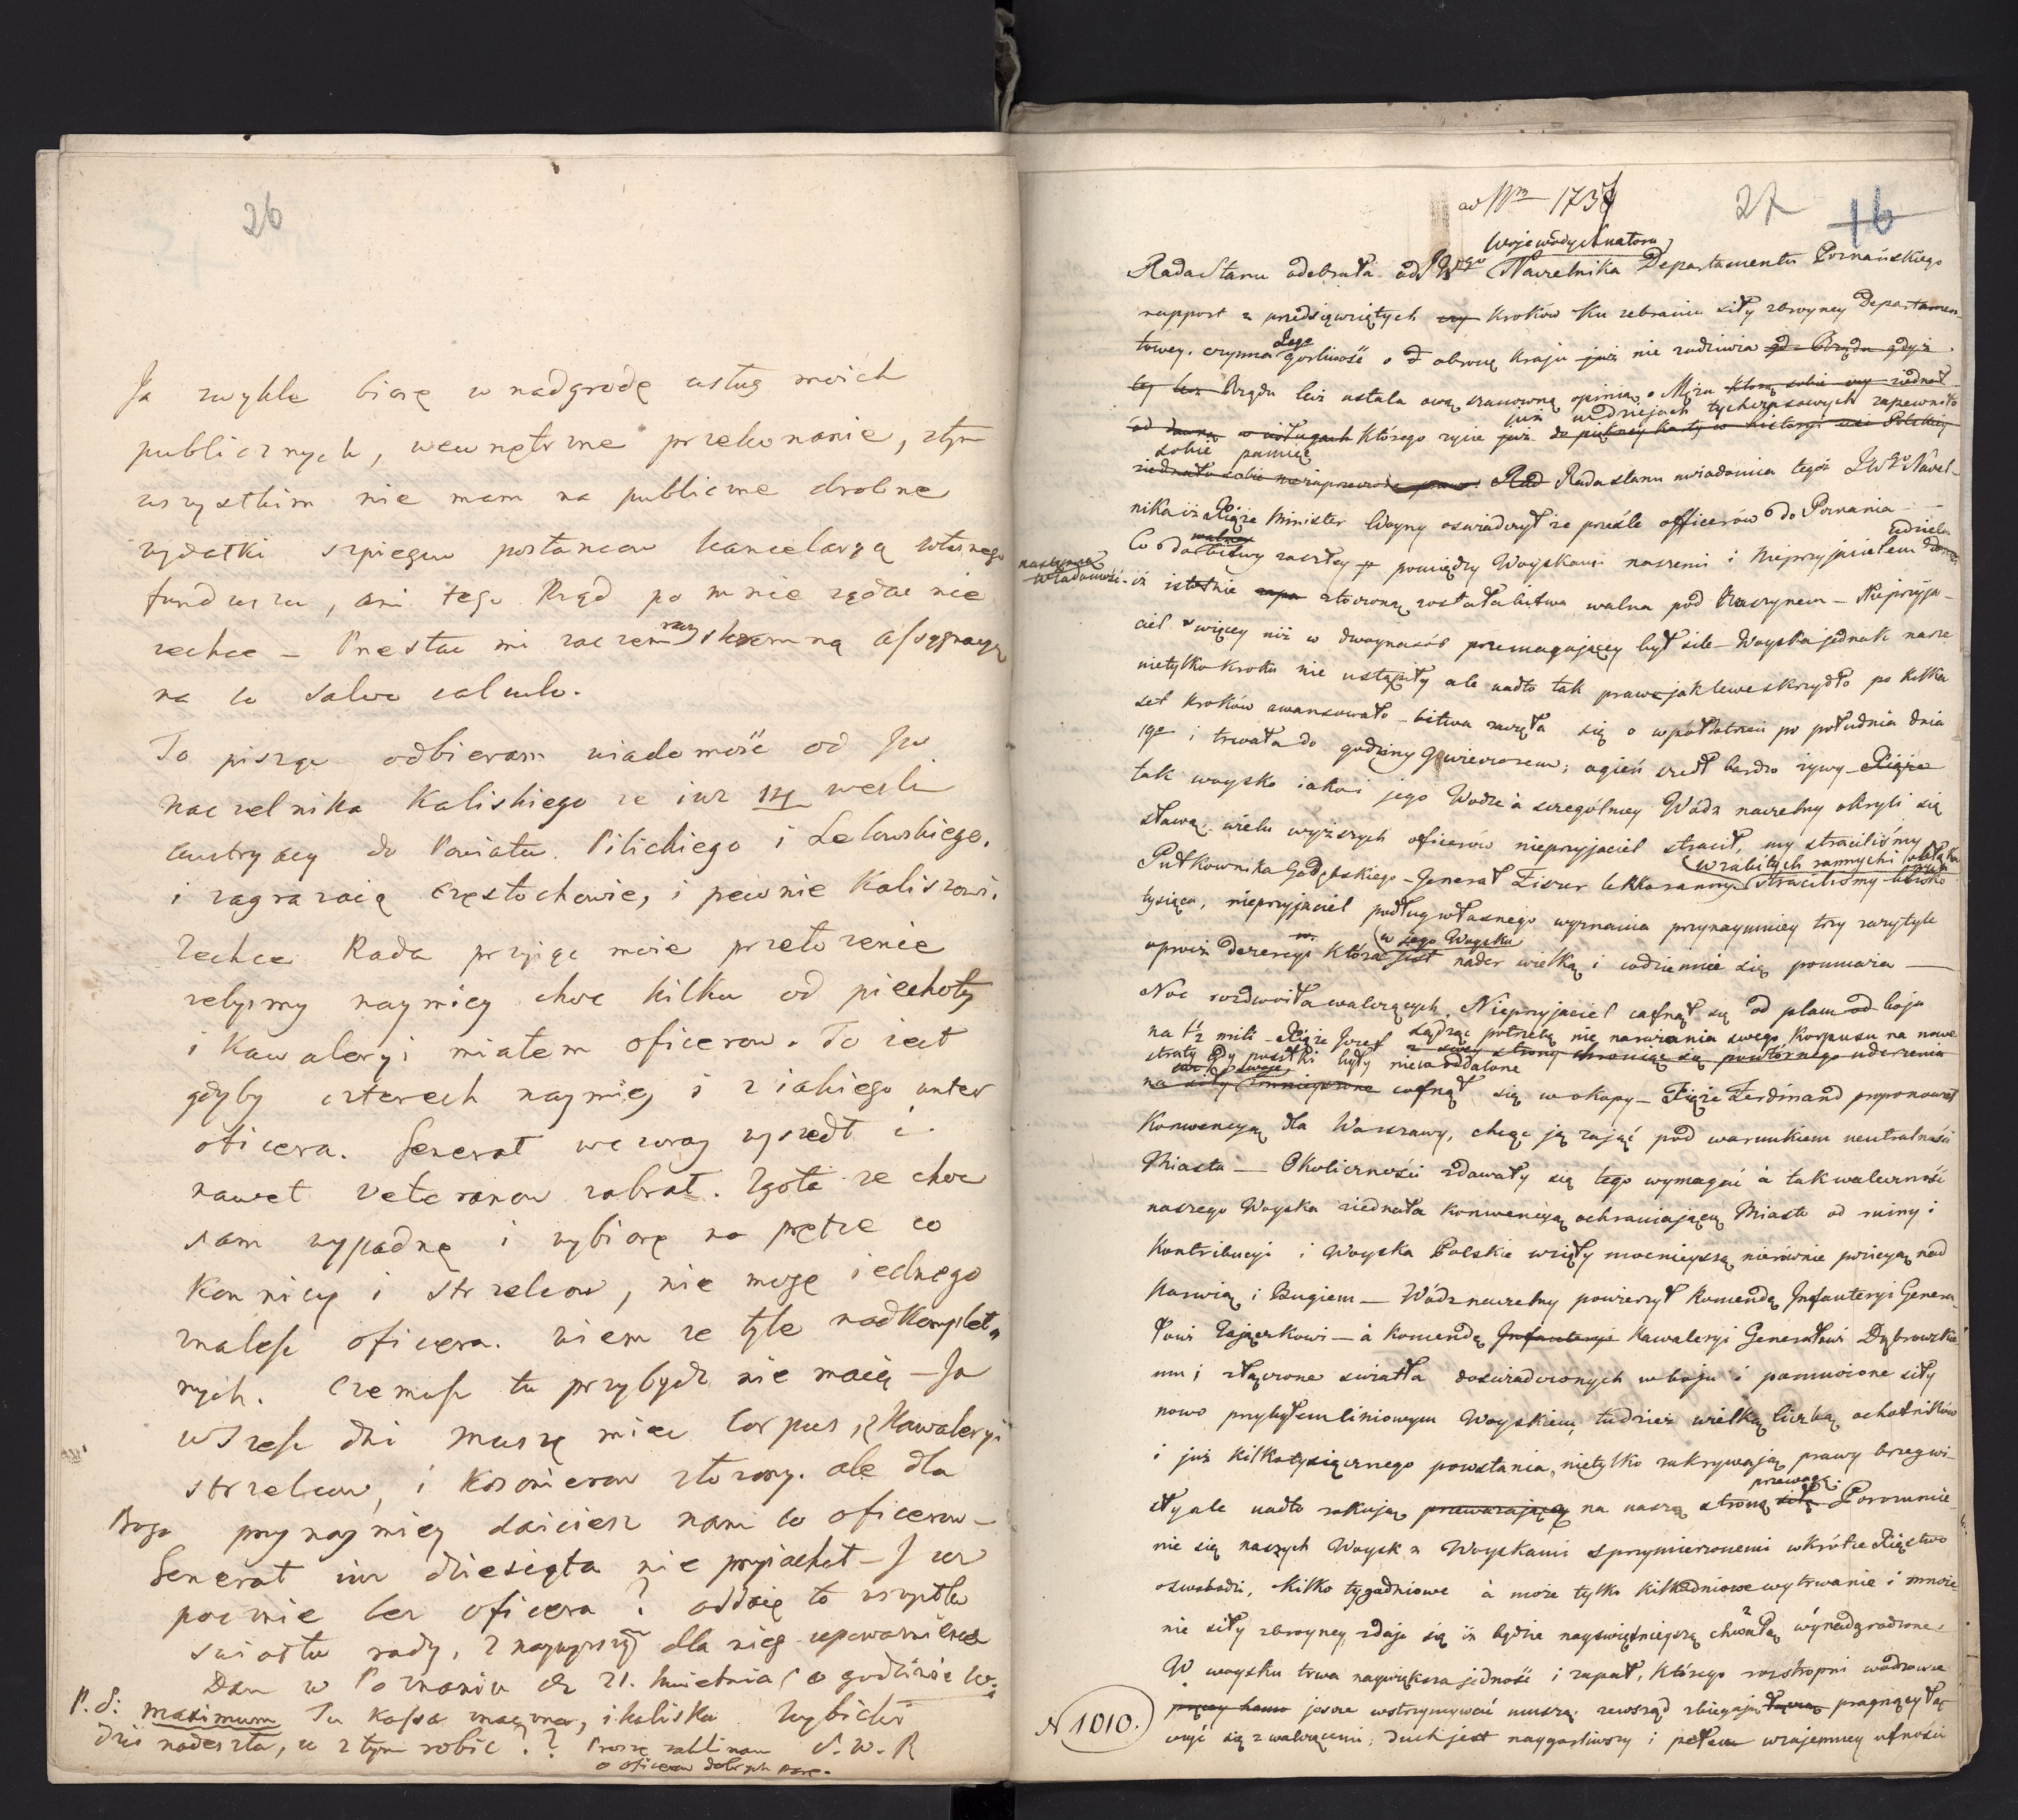 26
Ja zwykle biorę w nadgrodę usług moich
publicznych, wewnętrzne przekonanie, z tym
wszystkim nie mam na publiczne drobne
wydatki szpiegow posłancow kancelaryą własnego
funduszu, ani tego Rząd po mnie rządać nie
zechce – Przesłać mi raczem raz skromną assygnacyę
na to salvo calculo.
To pisząc odbieram wiadomość od JW
Naczelnika Kaliskiego ze iuz 14 weszli
Austryacy do Powiatu Pilickiego i Lelowskiego.
i zagrazaią Częstochowie, i pewnie Kaliszowi.
Zechce Rada przyiąć moie przełozenie
zebysmy naymniey choc kilku od piechoty
i Kawaleryi miałem oficerow. To iest
gdyby czterech naymniey i z iakiego unter
oficera. Generał wczoray wyszedł i
nawet Veteranow zabrał. Zgoła ze choc
sam wypadnę i wybiorę na prętce co
Konnicy i Strzelcow, nie mogę iednego
znalesc oficera. wiem ze tyle nadkomplet
nych. Czemusz tu przybydz nie maią – Ja
w szesc dni muszę miec Corpus z Kawaleryi
strzelcow, i Kosonierow złozony. ale dla
Boga przynaymniey daiciesz nam co oficerow –
Generał iuz dziesiąta nie przyiachał – J coz
pocznie bez oficera? oddaię to wszystko
swiatłu rady, z naywyzszym dla niey upowaznieniem
Dan w Poznaniu d 21. Kwietnia o godzinie 10.
P.S. maximum Tu Kassa znaczna, i kaliska Wybicki
dzis nadeszła, co z tym robic?? S. W. R
Proszę zaklinam
o oficerow dobrych parę.
ad Nrm 1738
27 16
Wojewody Senatora
Rada Stanu odebrała od JWgo Naczelnika Departamentu Poznańskiego
rapport z przedsięwziętych kroków ku zebraniu siły zbroyney Departamen-
towey. czynna Jego gorliwość o obronę kraju już nie zadziwia gdyż
Rządu lecz ustala ową szanowną opinią o Mężu którą sobie ziednał
już w dziejach tychczasowych zapewniło
którego życie już do piękney karty w historyi
sobie pamięć
Rada Stanu uwiadomia tegoż JWgo Naczel-
nika iż Xiąże Minister Woyny oswiadczył że przeszle officerów do Poznania –
walney udziela
Co do bitwy zaszłey pomiędzy Woyskami naszemi i Nieprzyjacielem
następną wiadomość – iż istotnie stoczoną została bitwa walna pod Raszynem – Nieprzyja-
ciel więcey niż w dwoynasób przemagającey był sile – Woyska jednak nasze
nietylko kroku nie ustąpiły ale nadto tak prawe jak lewe skrzydło po kilka
set kroków awansowało – bitwa zaczęła się o wpół do trzeci po południu dnia
19o i trwała do godziny 9 wieczorem; ogień szedł bardzo żywy – Xiąże
tak woysko iako i jego Wodze à szczególniey Wódz naczelny okryli się
sławą. wielu wyższych oficerów nieprzyjaciel stracił, my straciliśmy
w zabitych rannych i
Pułkownika Godębskiego – Generał Fiszer lekko ranny straciliśmy blisko
tysiąca, nieprzyjaciel podług własnego wyznania przynaymniey trzy razy tyle
w jego Woysku
oprócz dezercyi która jest nader wielką i codziennie się pomnaża —
Noc rozdwoiła walczących. Nieprzyjaciel cofnął się od placu boju
na 1/2 mili – Xiąże Józef sądząc potrzebą nie narażania swego korpusu na nowe
straty gdy posiłki były nieco oddalone chroniąc się powtórnego uderzenia
na siły zmnieyszone cofnął się w okopy – Xiąże Ferdinand proponował
Konwencyą dla Warszawy, chcąc ją zająć pod warunkiem neutralności
Miasta — Okoliczności zdawały się tego wymagać à tak waleczność
naszego Woyska ziednała konwencyą ochraniającą Miasto od ruiny i
Kontribucyi i Woyska Polskie wzięły mocnieyszą nierównie pozycyą nad
Narwią i Bugiem — Wódz naczelny powierzył komendę Jnfanteryi Genera-
łowi Zajączkowi – à komendę Jnfanteryi Kawaleryi Generałowi Dąbrowskie
mu i złączone swiatła doświadczonych w boju i pomnożone siły
nowo przybyłem liniowym Woyskiem, tudzież wielką liczbą ochotników
i już kilkotysięcznego powstania, nietylko zakrywają prawy brzeg Wi-
przewagę
sły ale nadto rokują przeważającą na naszą stronę siłę. Porozumie-
nie się naszych Woysk z Woyskami sprzymierzonemi wkrótce Xięstwo
oswobodzi, kilko tygodniowe à może tylko kilkodniowe wytrwanie i mnoże
nie siły zbroyney zdaje się iż będzie nayświetnieyszą chwałą wynadgrodzone.
W woysku trwa naywiększa jedność i zapał, którego roztropni wodzowie
jeszcze wstrzymywać muszą. zewsząd zbiegają pragnący łą
czyć się z walczącemi, duch jest naygorliwszy i pełen wzajemney ufności
N 1010.